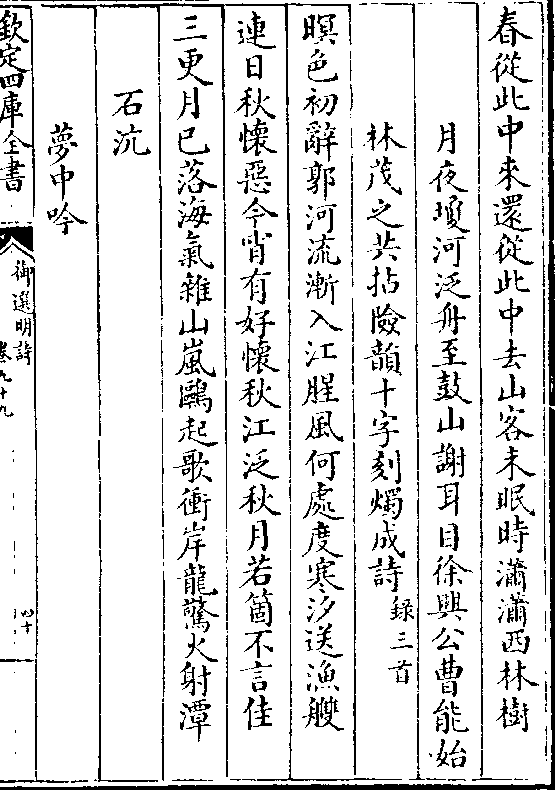 春從此中來還從此中去山客未眠時瀟瀟西林樹
月夜墁河泛舟至鼓山謝耳目徐興公曹能始
林茂之共拈險韻十字刻燭成詩録三首
暝色初辭郭河流漸入江腥風何處度寒汐送漁艭
連日秋懷惡今宵有好懷秋江泛秋月若箇不言佳
三更月已落海氣雜山嵐鷗起歌衝岸龍驚火射潭
石沆
夢中吟
欽定四庫全書
御選明詩
卷九十九
四十